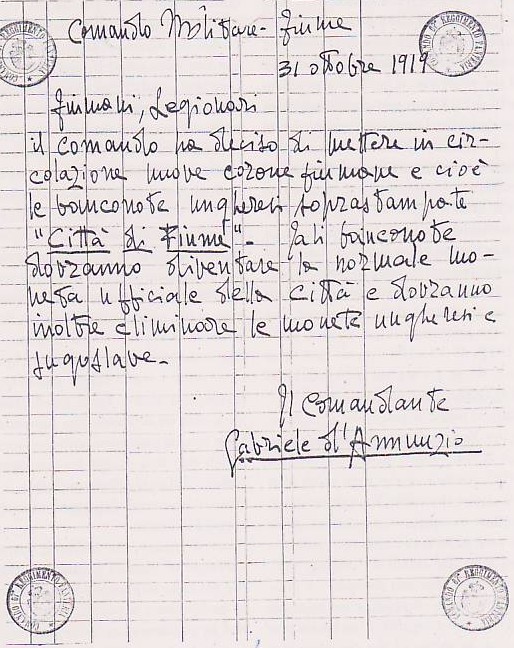 Comando Militare - Fiume
31 ottobre 1919
Fiumani, Legionari
il comando ha deciso di mettere in cir-
colazione nuove corone fiumane e cioè
le banconote ungheresi soprastampate
"Città di Fiume". Tali banconote
dovranno diventare la normale mo-
neta ufficiale della città e dovranno
inoltre eliminare le monete ungheresi e
jugoslave.
Il Comandante
Gabriele d'Annunzio
COMANDO 6° REGGIMENTO FANTERIA
COMANDO 6° REGGIMENTO FANTERIA